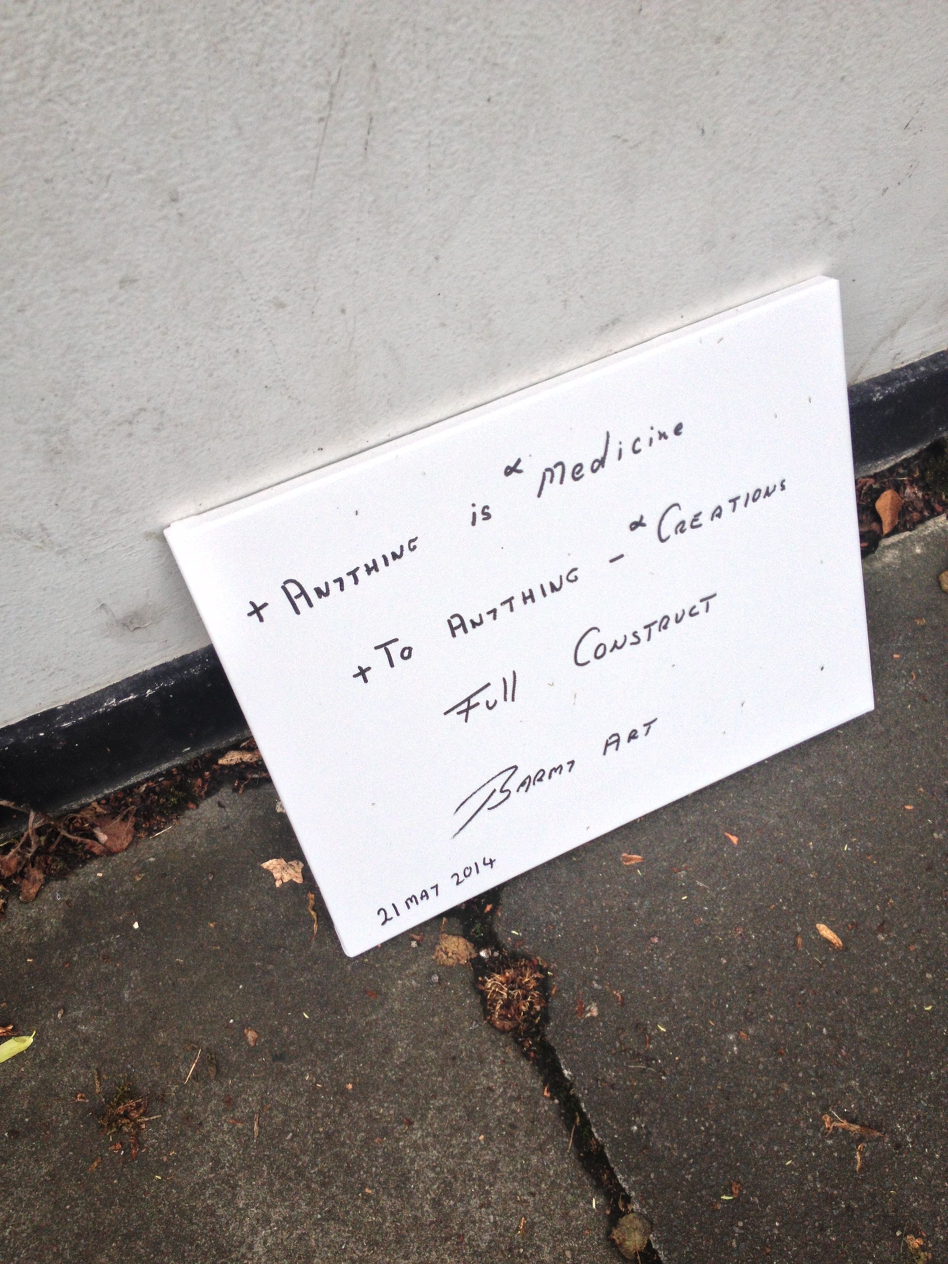 + ANYTHING is α Medicine
+ To ANYTHING - α CREATIONS
Full CONSTRUCT
BARMY ART
21 MAY 2014